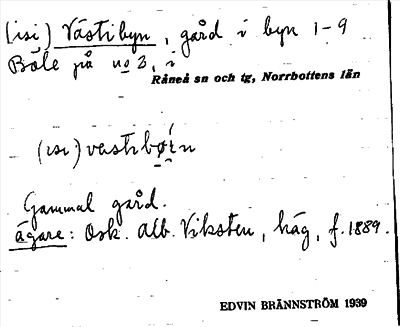 (isi) Västibyn, gård i byn 1-9
Böle på no 3, i
Råneå sn och tg, Norrbottens län
(isi) vastibø̱ín
Gammal gård.
ägare: Osk. Alb. Viksten, häg, f. 1889.
EDVIN BRÄNNSTRÖM 1939